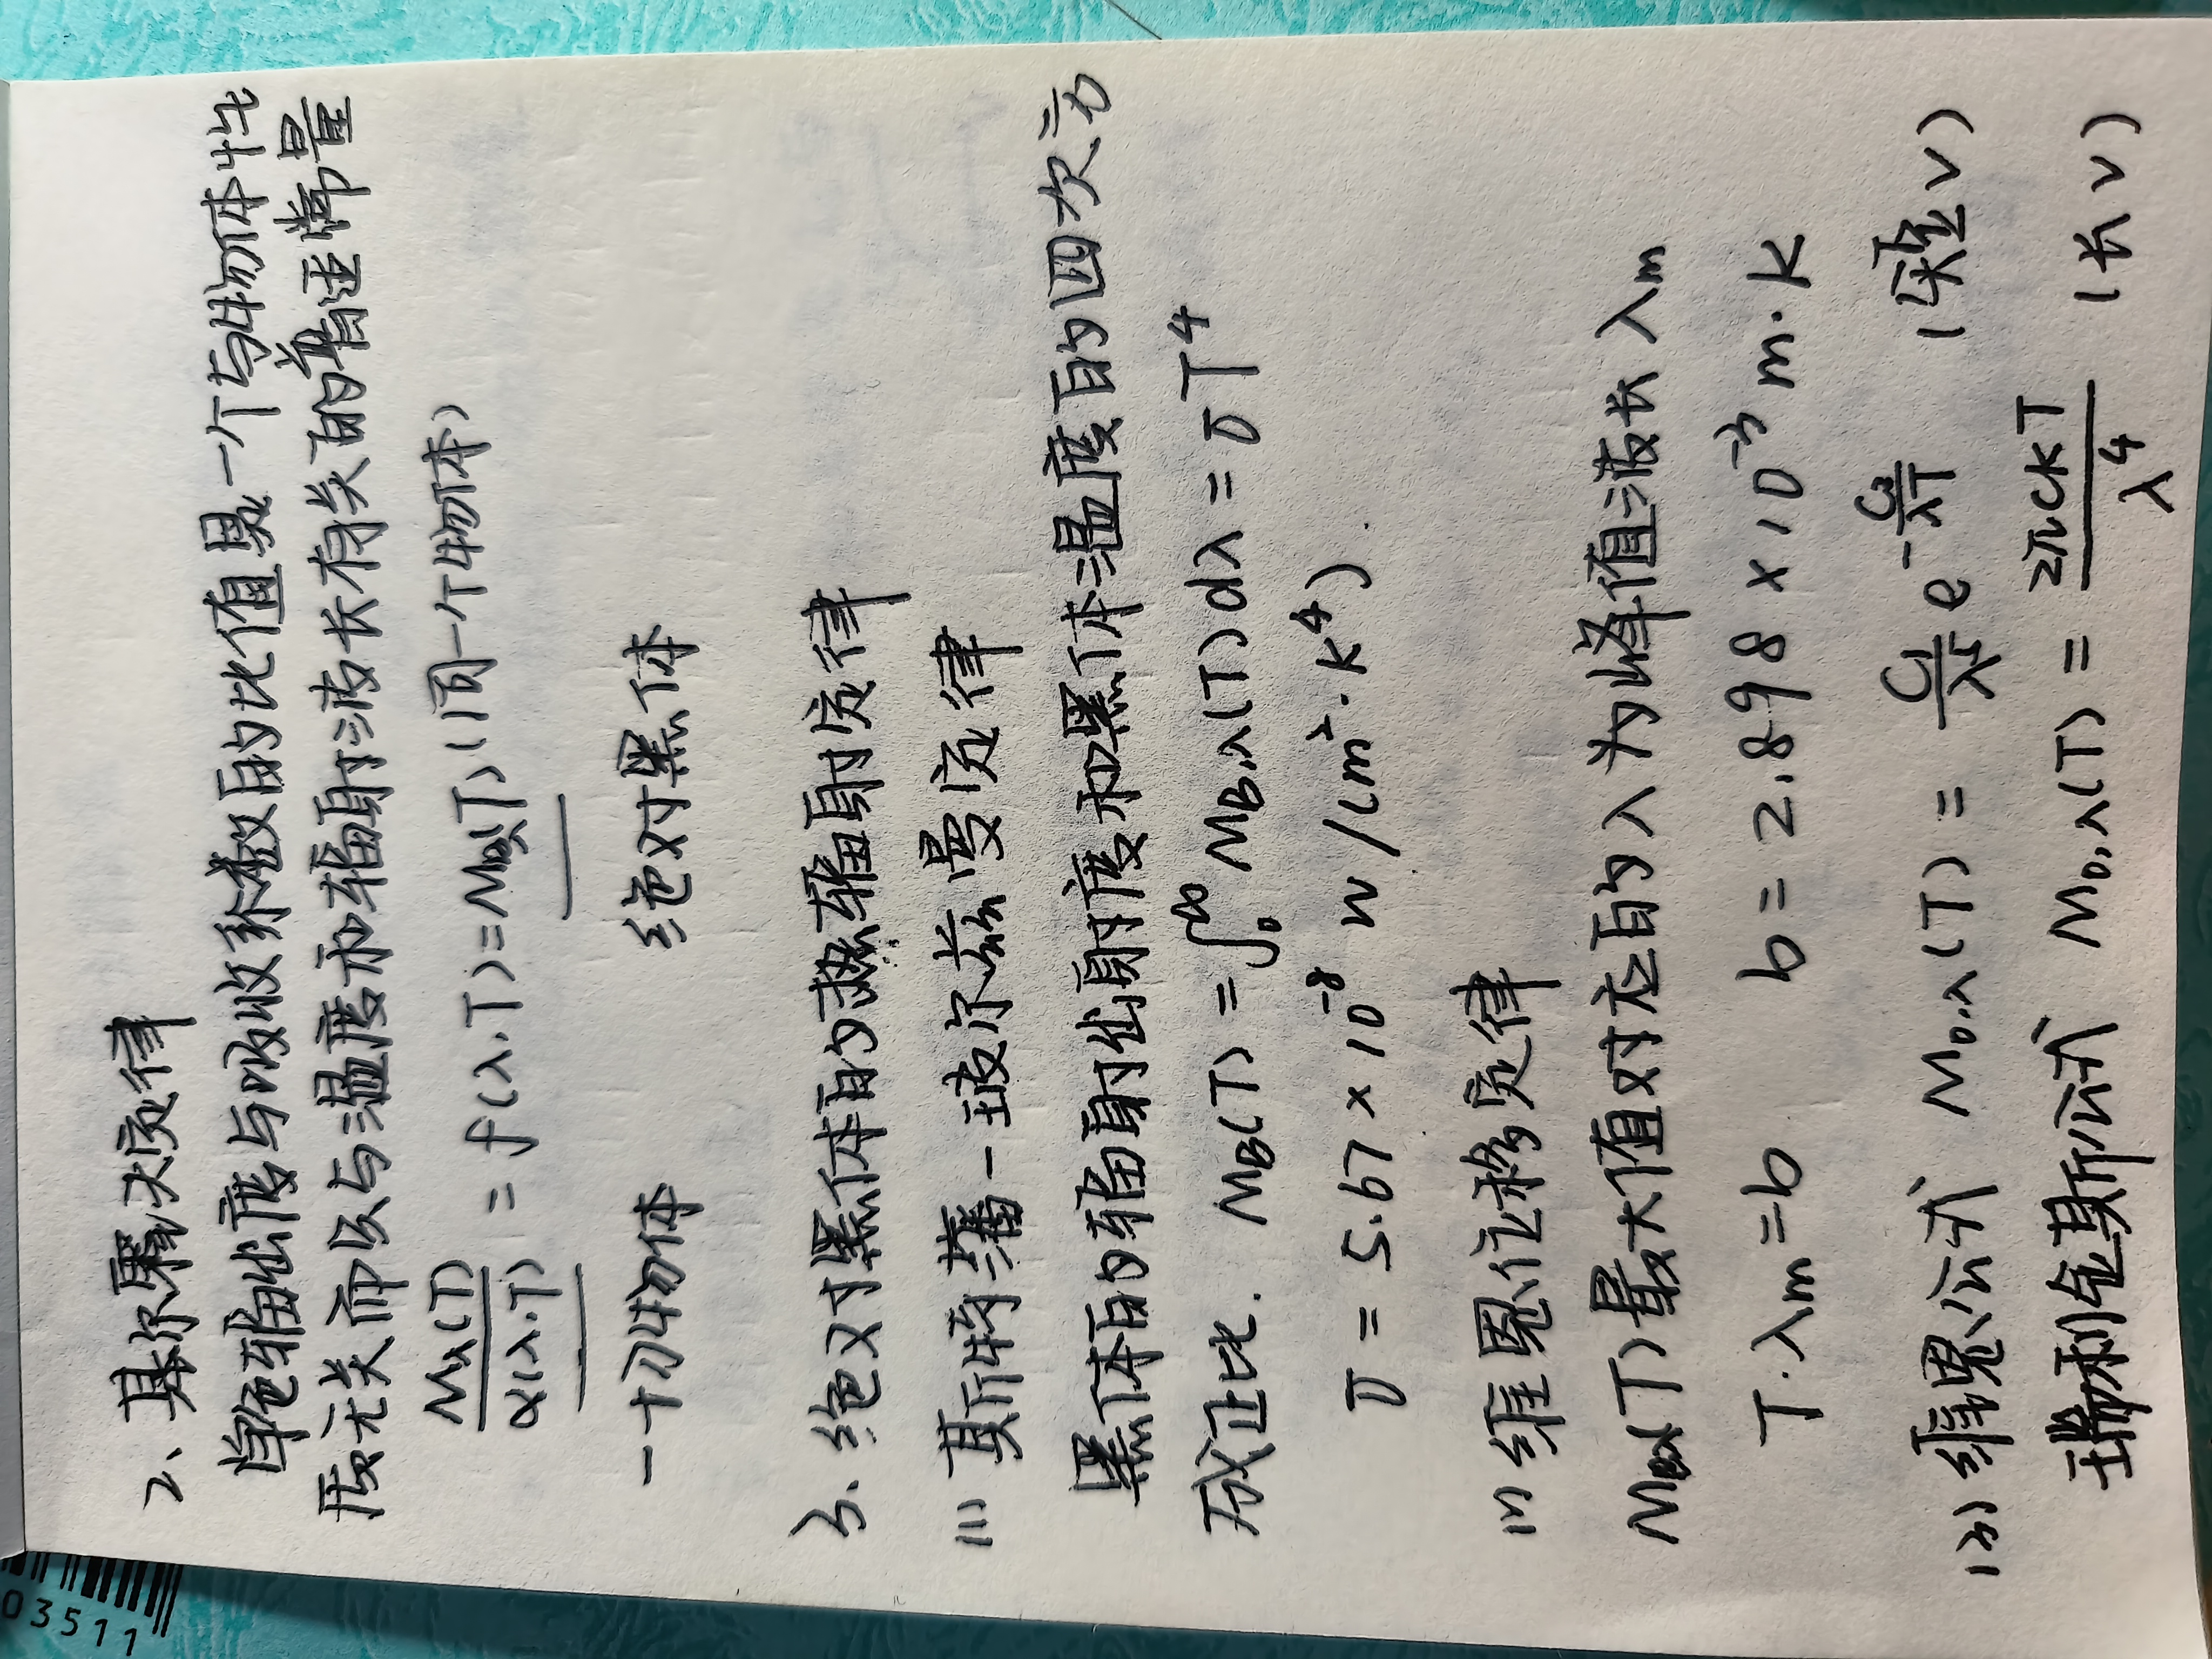 03511
2、基尔霍夫定律
单色辐出度与吸收系数的比值是一个与物体性
质无关而仅与温度和辐射波长有关的普适常量
Mλ(T)/α(λ,T) = f(λ,T) = MBλ(T) (同一个物体)
一切物体 绝对黑体
3、绝对黑体的热辐射定律
(1) 斯特藩-玻尔兹曼定律
黑体的辐射出射度和黑体温度的四次方
成正比. MB(T) = ∫₀^∞ MB,λ(T)dλ = σT⁴
σ = 5.67×10⁻⁸ W/(m²·K⁴).
(2) 维恩位移定律
MBλ(T)最大值对应的λ为峰值波长λm
T·λm=b b=2.898×10⁻³ m·K
(3) 维恩公式 M₀,λ(T) = C₁/λ⁵ e^(-C₂/λT) (短√)
瑞利金斯公式 M₀,λ(T) = 2πckT/λ⁴ (长√)